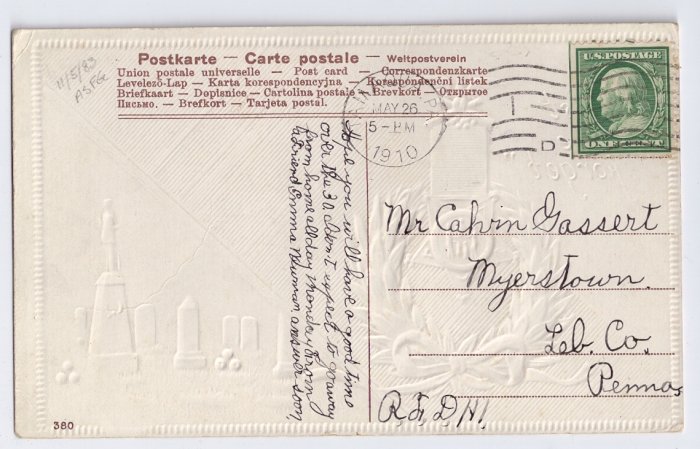 11/5/93
ASFG
Postkarte — Carte postale — Weltpostverein
Union postale universelle — Post card — Correspondenzkarte
Levelező-Lap — Karta korespondencyjna — Korespondenční listek
Briefkaart — Dopisnice — Cartolina postale — Brevkort — Открытое
Письмо. — Brefkort — Tarjeta postal.
MAY 26
5-PM
1910
D
U.S. POSTAGE
ONE CENT
Hope you will have a good time
over the 30 I don't expect to go away
from home all day Monday
Friend Emma answer soon,
Mr Calvin Gassert
Myerstown.
Leb. Co.
Penna,
R.F.D #1.
380